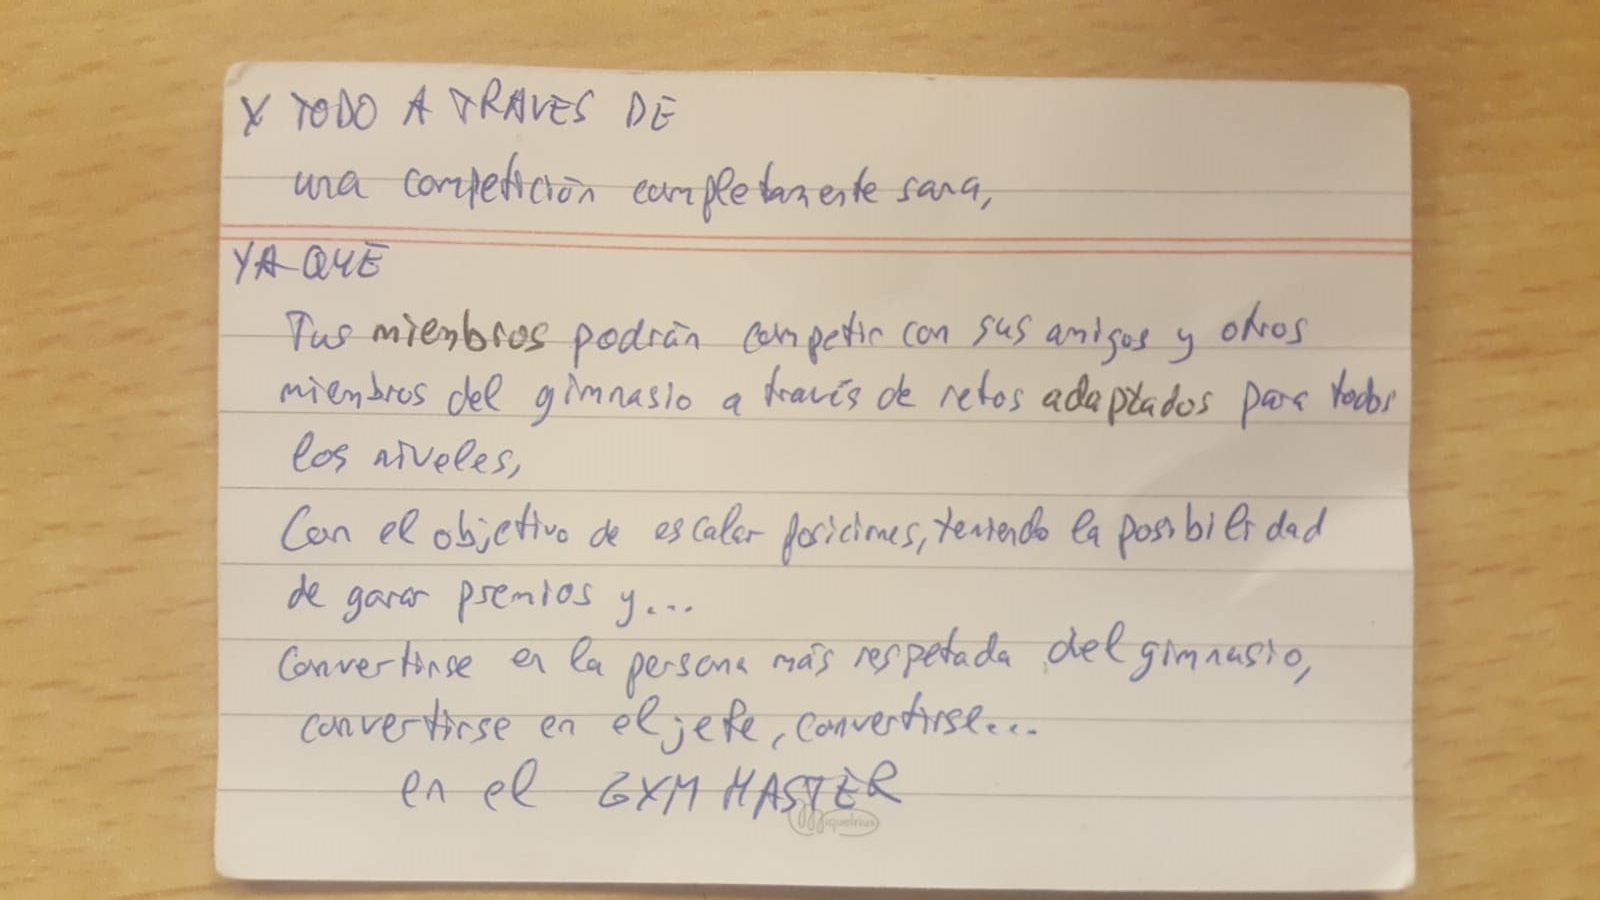 Y TODO A TRAVES DE
una competición completamente sana,
YA QUE
Tus miembros podrán competir con sus amigos y otros
miembros del gimnasio a través de retos adaptados para todos
los niveles,
Con el objetivo de escalar posiciones, teniendo la posibilidad
de ganar premios y...
Convertirse en la persona más respetada del gimnasio,
convertirse en el jefe, convertirse...
en el GYM MASTER
Miquelrius